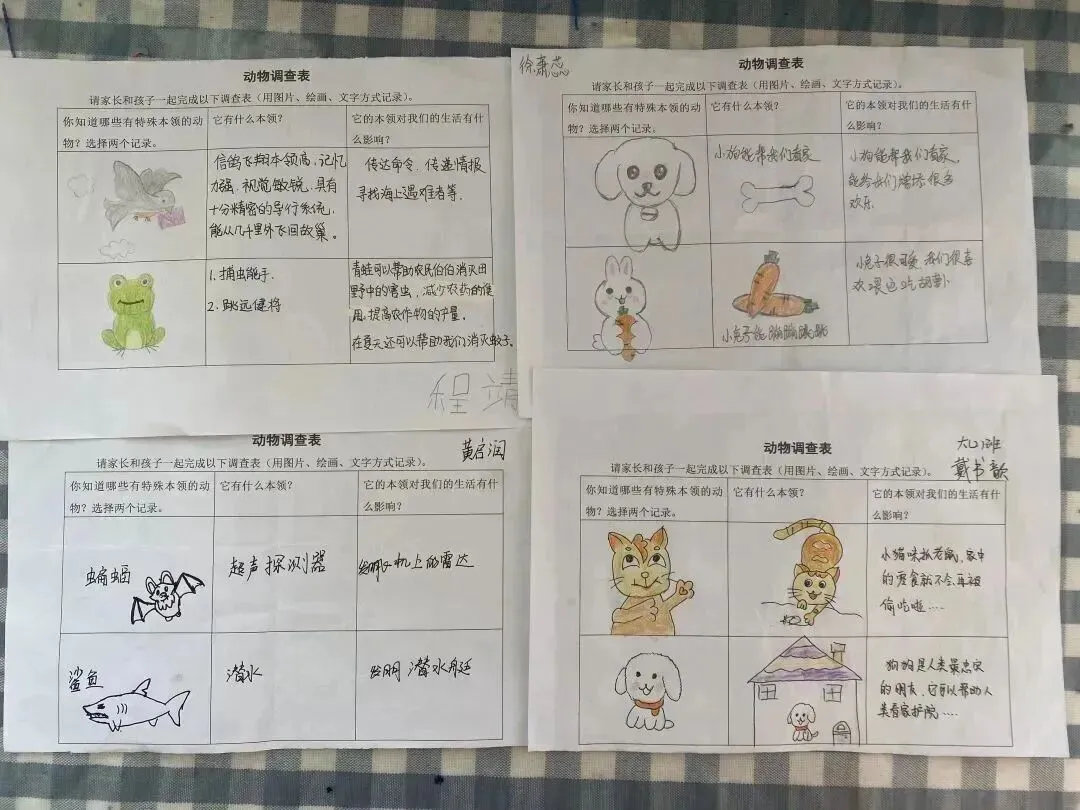 动物调查表
请家长和孩子一起完成以下调查表（用图片、绘画、文字方式记录）。
你知道哪些有特殊本领的动
物？选择两个记录。
它有什么本领？
它的本领对我们的生活有什
么影响？
信鸽飞翔本领高，记忆
力强，视觉敏锐，具有
十分精密的导行系统，
能从几千里外飞回故巢。
传达命令，传递情报
寻找海上遇难者等.
1. 捕虫能手.
2. 跳远健将
青蛙可以帮助农民伯伯消灭田
野中的害虫，减少农药的使
用,提高农作物的产量.
在夏天还可以帮助我们消灭蚊子.
程靖
徐萧蕊
动物调查表
请家长和孩子一起完成以下调查表（用图片、绘画、文字方式记录）。
你知道哪些有特殊本领的动
物？选择两个记录。
它有什么本领？
它的本领对我们的生活有什
么影响？
小狗能帮我们看家
小狗能帮我们看家,
能给我们增添很多
欢乐.
小兔子能蹦蹦跳跳
小兔子很可爱,我们很喜
欢喂它吃胡萝卜
动物调查表
黄启润
请家长和孩子一起完成以下调查表（用图片、绘画、文字方式记录）。
你知道哪些有特殊本领的动
物？选择两个记录。
它有什么本领？
它的本领对我们的生活有什
么影响？
蝙蝠
超声探测器
发明飞机上的雷达
鲨鱼
潜水
发明潜水艇
动物调查表
戴书歆
请家长和孩子一起完成以下调查表（用图片、绘画、文字方式记录）。
你知道哪些有特殊本领的动
物？选择两个记录。
它有什么本领？
它的本领对我们的生活有什
么影响？
小猫咪抓老鼠,家中
的零食就不会再被
偷吃啦....
狗狗是人类最忠实
的朋友,它可以帮助人
类看家护院....